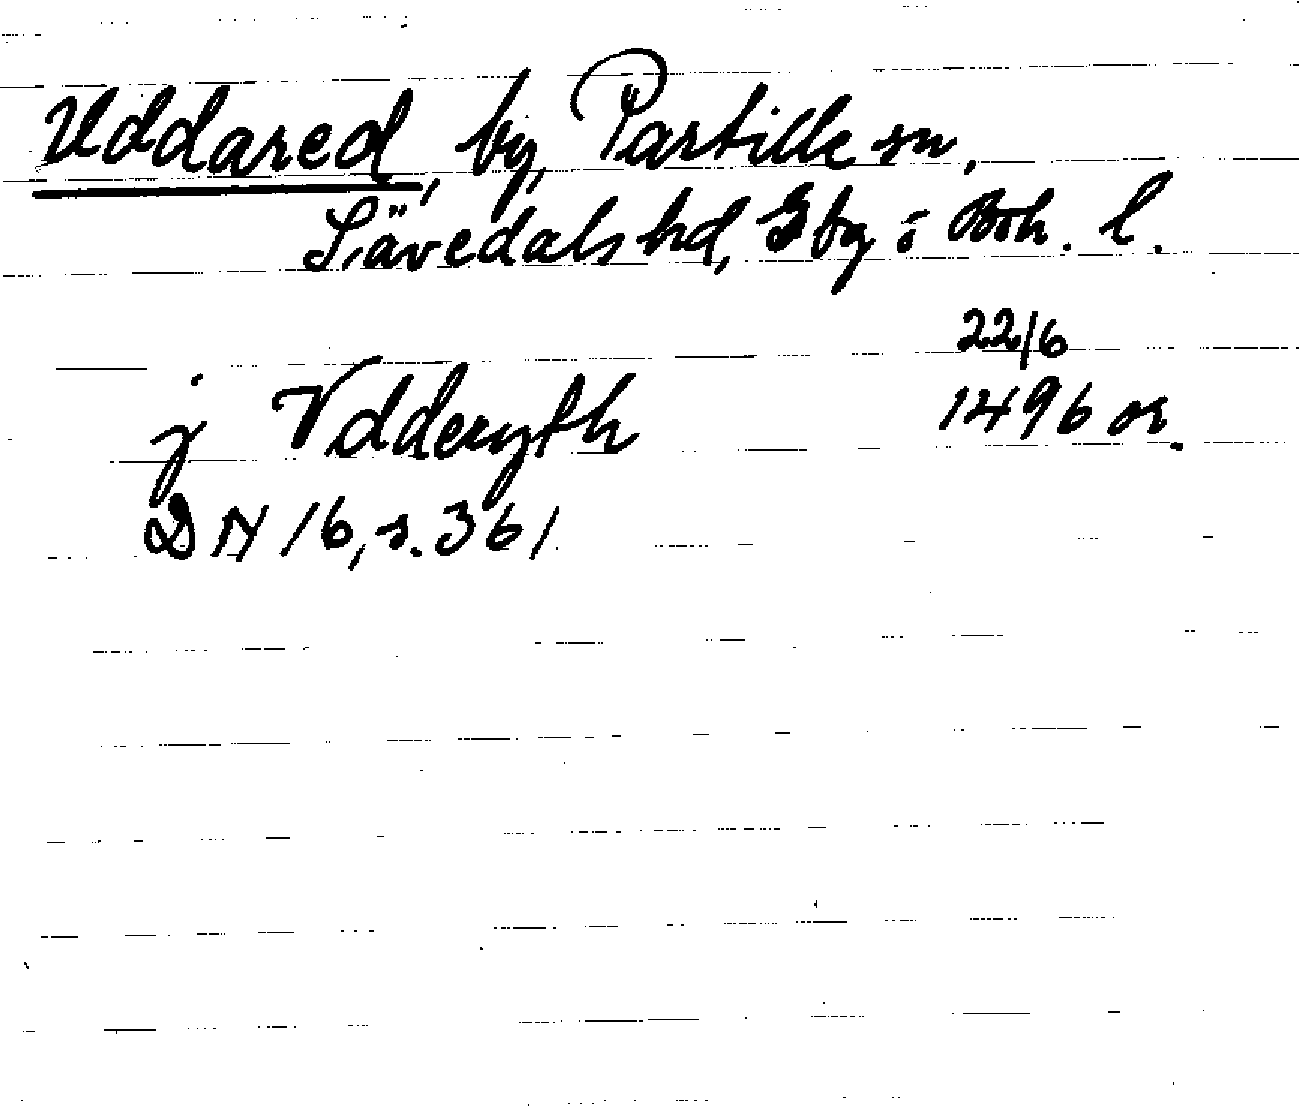 Uddared, by, Partille sn,
Sävedals hd, Gbg o Boh. l.
22/6
j Vdderyth 1496 or.
DN 16, s. 361